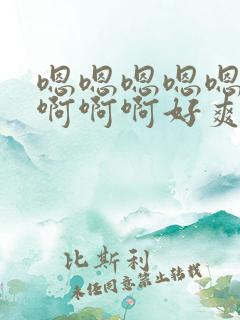 嗯嗯嗯嗯嗯
啊啊啊好爽
比斯利
未经同意禁止转载